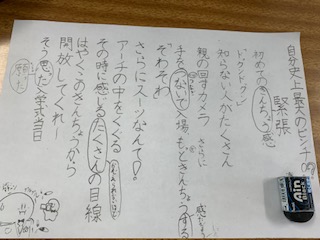 自分史上最大のピンチ
緊張
初めてのきんちょう感
ドクンドクン
知らない人がたくさん
親の回すカメラ
さらに
手をつないで入場、もっときんちょうする
そわそわ
さらにスーツなんて
アーチの中をくぐる
その時に感じるたくさんの目線
はやくこのきんちょうから
開放してくれー
そう思った入学式当日
願った
Ain